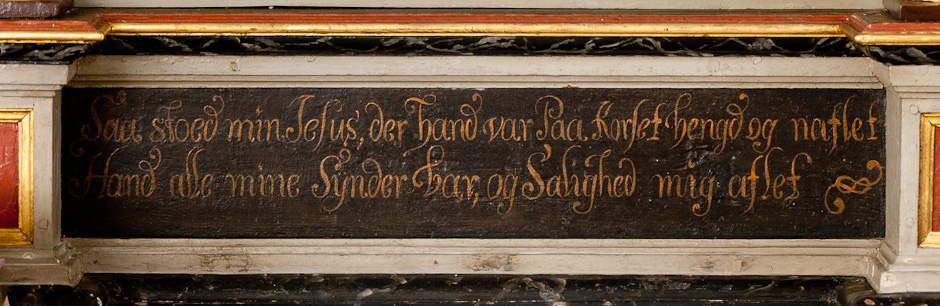 Saa stoed min Jesus, der hand var Paa Korset hengd og naflet
Hand alle mine Synder bar, og Salighed mig aflet